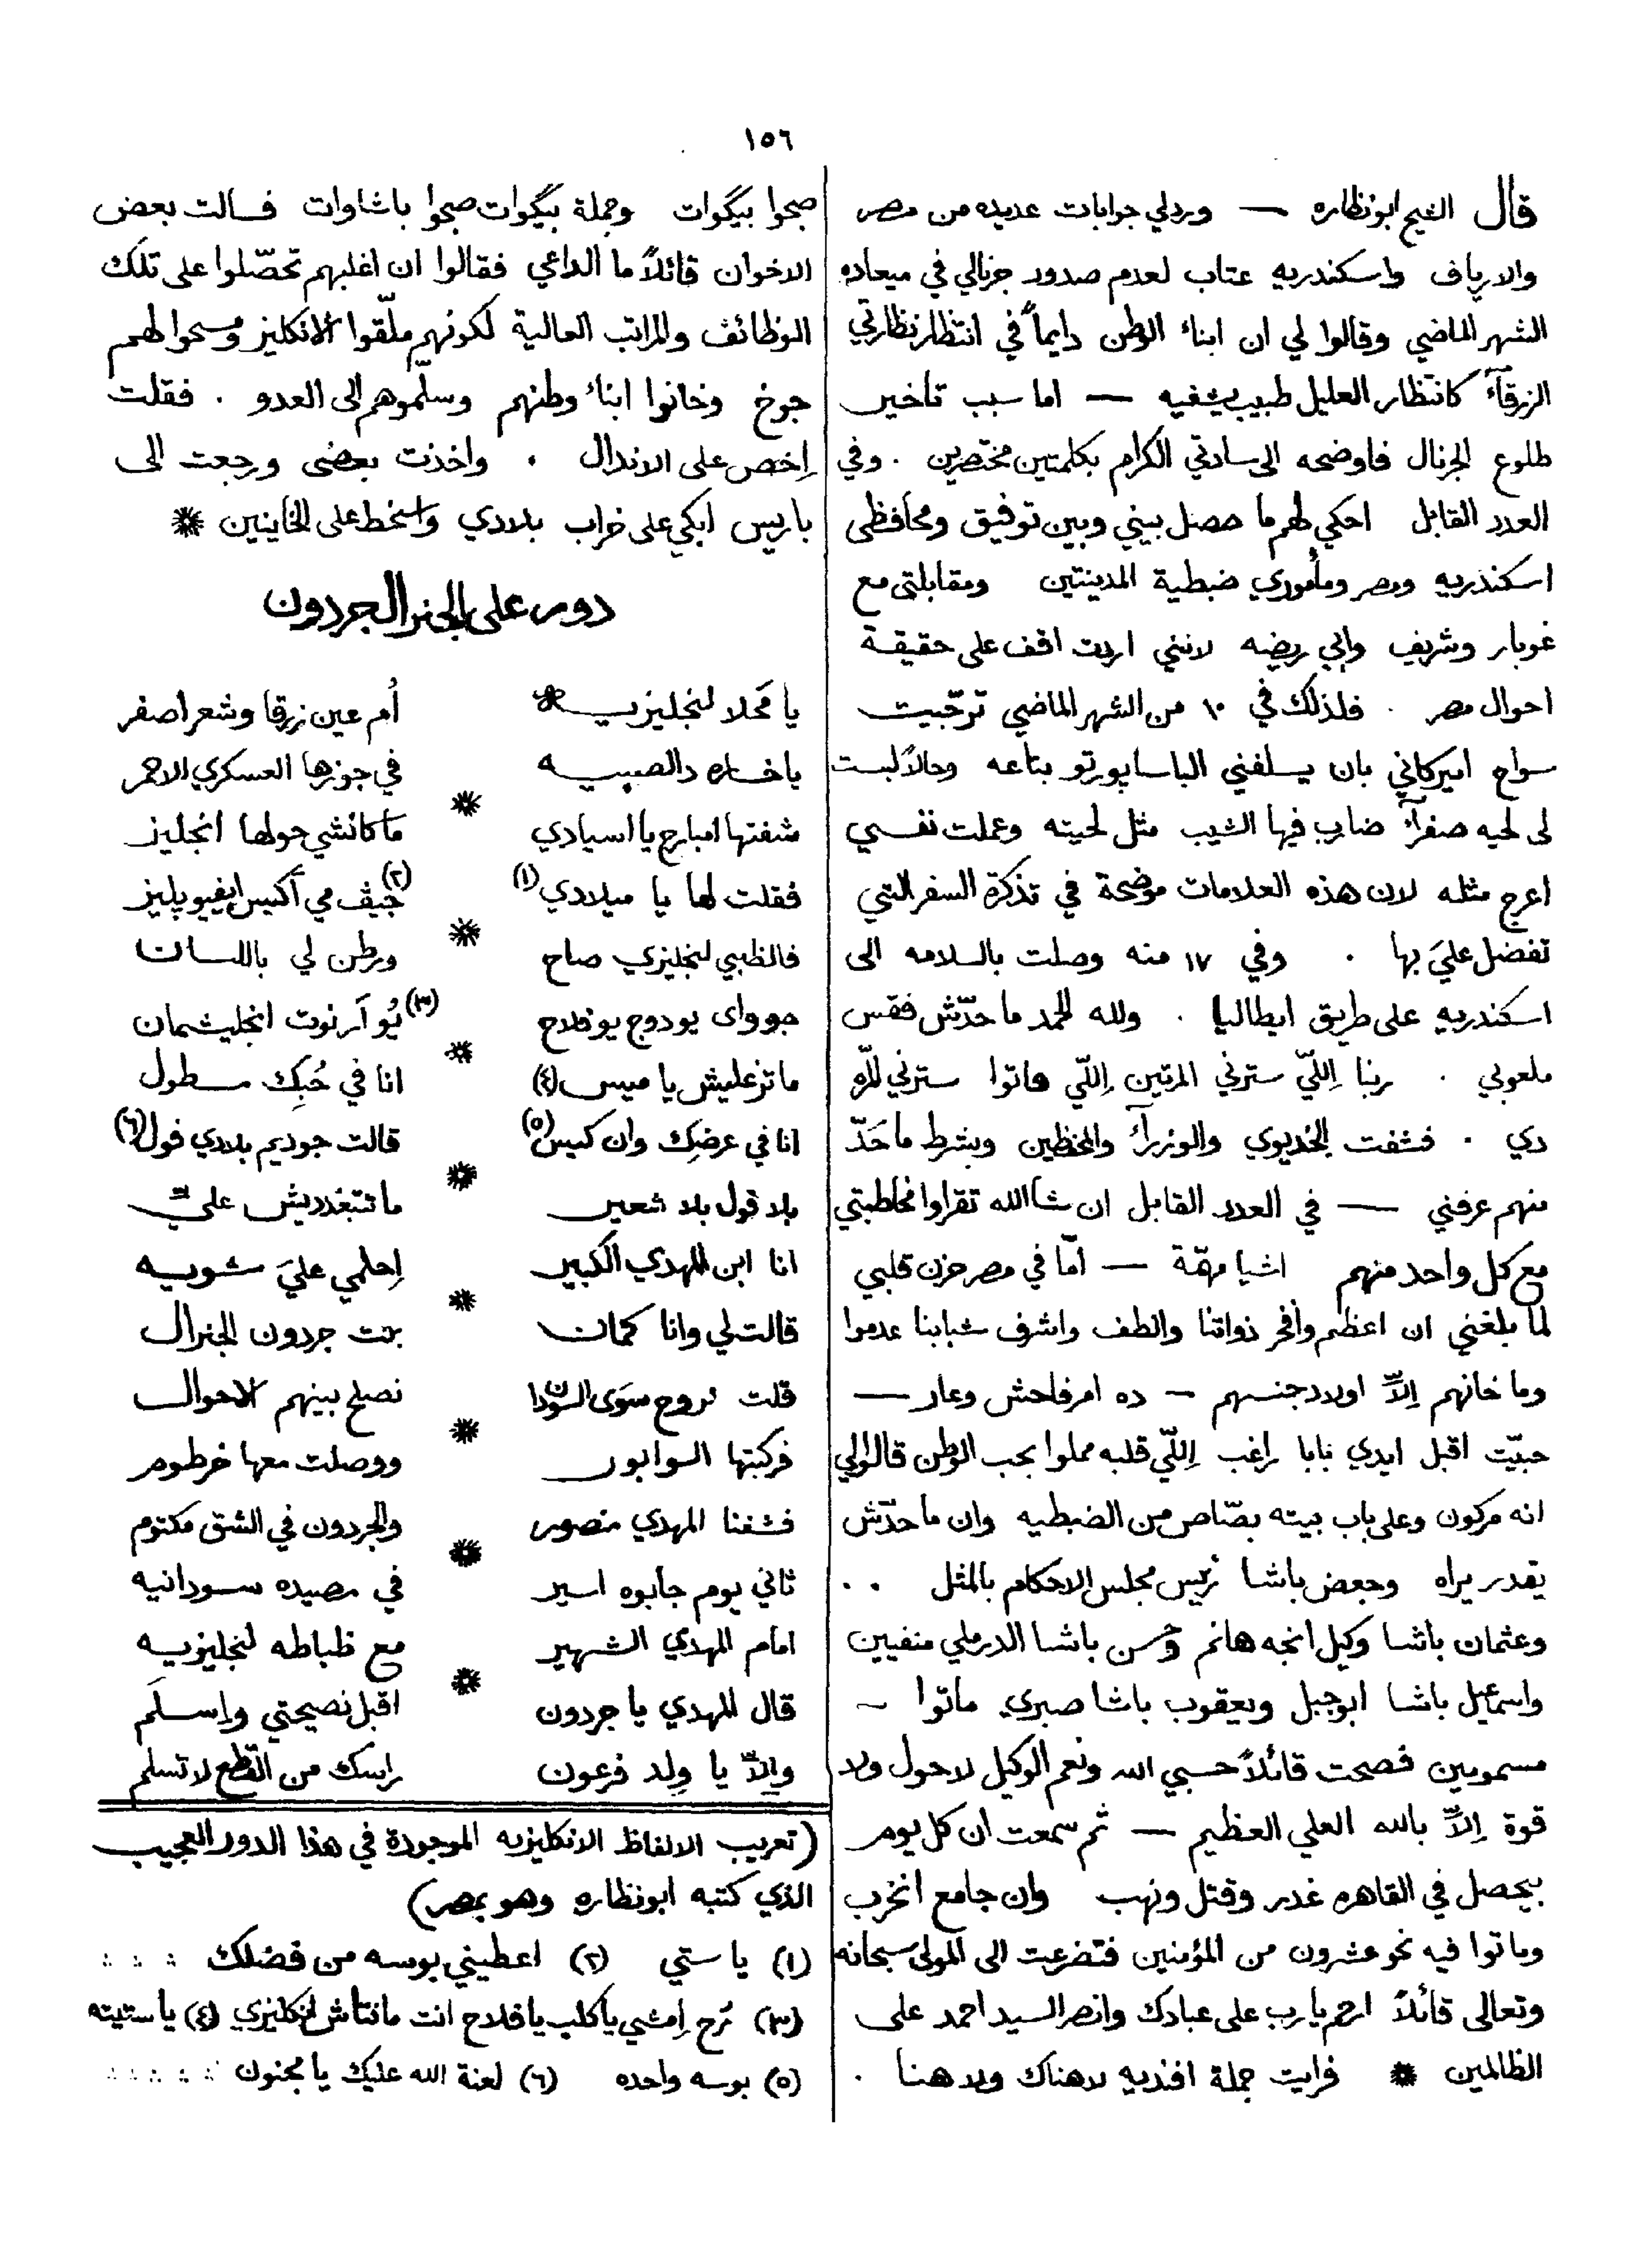 ١٥٦
قال الشيخ ابونظاره — وردلي جوابات عديده من مصر
والارياف واسكندريه عتاب لعدم صدور جرنالي في ميعاده
الشهر الماضي وقالوا لي ان ابناء الوطن دايماً في انتظار نظارتي
الزرقآء كانتظار العليل طبيب يشفيه — اما سبب تأخير
طلوع الجرنال فاوضحه الى سادتي الكرام بكلمتين مختصرين . وفي
العدد القابل احكي لهم ما حصل بيني وبين توفيق ومحافظى
اسكندريه ومصر ومأموري ضبطية المدينتين ومقابلتى مع
غوبار وشريف وابي ريضه لانني اردت اقف على حقيقة
احوال مصر . فلذلك في ١٠ من الشهر الماضي ترجّيت
سواح اميركاني بان يسلفني الباسابورتو بتاعه وحالاً لبست
لى لحيه صفرآء ضارب فيها الشيب مثل لحيته وعملت نفسي
اعرج مثله لان هذه العلامات موضحة في تذكرة السفر التي
تفضل عليَ بها . وفي ١٧ منه وصلت بالسلامه الى
اسكندريه على طريق ايطاليا . ولله الحمد ما حدّش فقس
ملعوبي . ربنا اِللّي سترني المرتين اِللّي فاتوا سترني المرّه
دي . فشفت الخديوي والوزرآء والمحظين وبشرط ما حَدّ
منهم عرفني — في العدد القابل ان شاالله تقراوا مخاطبتي
مع كل واحد منهم اشيا مهمّة — امّا في مصر حزن قلبي
لما بلغني ان اعظم وافخر ذواتنا والطف واشرف شبابنا عدموا
وما خانهم اِلاّ اولاد جنسهم — ده امر فاحش وعار —
حبيّت اقبل ايدي بابا راغب اِللّي قلبه مملوا بحب الوطن قالوالي
انه مركون وعلى باب بيته بصّاص من الضبطيه وان ما حدّش
يقدر يراه وجعض باشا رئيس مجلس الاحكام بالمثل . .
وعثمان باشا وكيل انجه هانم وحسن باشا الدرملي منفيين
واسماعيل باشا ابوجبل ويعقوب باشا صبري ماتوا —
مسمومين فصحت قائلاً حسبي الله ونعم الوكيل لاحول ولا
قوة اِلاّ بالله العلي العظيم — ثم سمعت ان كل يوم
بيحصل في القاهره غدر وقتل ونهب وان جامع انخرب
وماتوا فيه نحو عشرون من المؤمنين فتضرعت الى المولى سبحانه
وتعالى قائلاً ارحم يارب على عبادك وانصر السيد احمد على
الظالمين * فرايت جملة افنديه لاهناك ولاهنا .
صبحوا بيگوات وجملة بيگوات صبحوا باشاوات فسالت بعض
الاخوان قائلاً ما الداعي فقالوا ان اغلبهم تحصّلوا على تلك
الوظائف والمراتب العالية لكونهم ملّقوا الانكليز ومسحوا لهم
جوخ وخانوا ابناء وطنهم وسلّموهم الى العدو . فقلت
اِخص على الاندال . واخذت بعضى ورجعت الى
باريس ابكي على خراب بلادي واسخط على الخاينين *
دور على الجنرال جردون
يا مَحلا لنجليزيه * اُم عين زرقا وشعر اصفر
ياخساره دالصبيه في جوزها العسكري الاحمر
*
شفتها امبارح يا اسيادي ماكانشي حولها انجليز
فقلت لها يا ميلادي (١) (٢) جيڤ مي أكيس ايفيو پليز
*
فالظبي لنجليزي صاح ورطن لي باللسان
جوواى يودوج يوفلاح (٣) يُو آر نوت انجليشمان
*
ماتزعليش يا ميس (٤) انا في حُبِك مسطول
انا في عرضِك وان كيس (٥) قالت جوديم بلادي فول (٦)
*
بلا فول بلا شعير ماتتبغدديش عليّ
انا ابن المهدي الكبير اِحلمي عليَ شويه
*
قالت لي وانا كمان بنت جردون الجنرال
قلت نروح سَوَى السودان نصلح بينهم الاحوال
*
فركبتها الوابور ووصلت معها خرطوم
فشفنا المهدي منصور والجردون في الشق مكتوم
*
ثاني يوم جابوه اسير في مصيده سودانيه
امام المهدي الشهير مع ظباطه لنجليزيه
*
قال المهدي يا جردون اقبل نصيحتي واِسلَم
واِلاّ يا وِلد فرعون راسك من القطع لا تسلم
(تعريب الالفاظ الانكليزيه الموجودة في هذا الدور العجيب
الذي كتبه ابونظاره وهو بمصر)
(١) يا ستي (٢) اعطيني بوسه من فضلك
(٣) رُح اِمشي يا كلب يا فلاح انت مانتاش انكليزي (٤) يا ستيته
(٥) بوسه واحده (٦) لعنة الله عليك يا مجنون